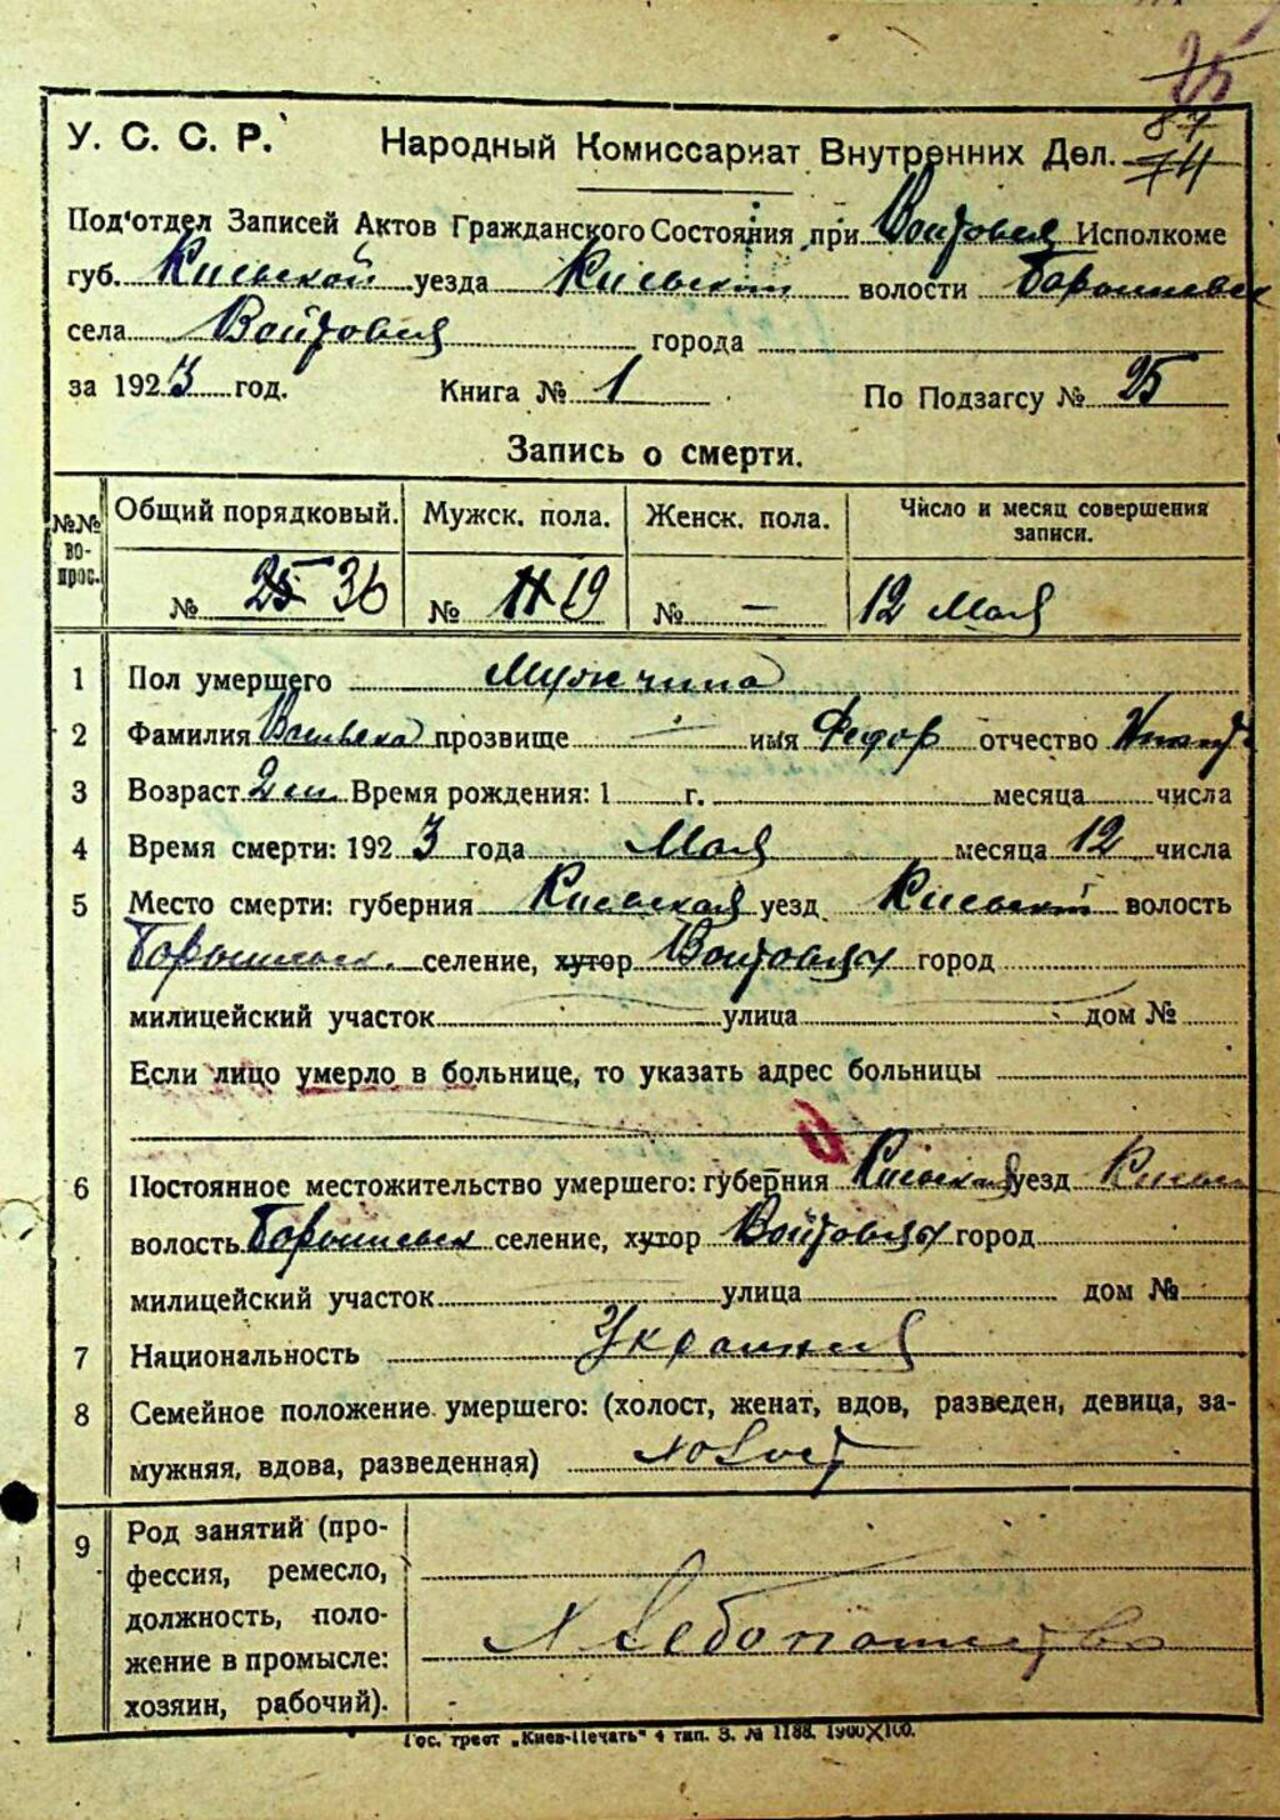 25
87
74
У. С. С. Р. Народный Комиссариат Внутренних Дел.
Под'отдел Записей Актов Гражданского Состояния при Войтовця Исполкоме
губ. Киевской уезда Киевский волости
села Войтовця города
за 1923 год. Книга № 1 По Подзагсу № 25
Запись о смерти.
№№ вопрос. Общий порядковый. Мужск. пола. Женск. пола. Число и месяц совершения
записи.
№ 25 36 № 11 19 № — 12 Мая
1 Пол умершего Мужчина
2 Фамилия прозвище — имя Федор отчество
3 Возраст Время рождения: 1 г. месяца числа
4 Время смерти: 1923 года Мая месяца 12 числа
5 Место смерти: губерния Киевская уезд Киевский волость
селение, хутор Войтовцях город
милицейский участок улица дом №
Если лицо умерло в больнице, то указать адрес больницы
6
6 Постоянное местожительство умершего: губерния Киевская уезд
волость селение, хутор Войтовцях город
милицейский участок улица дом №
7 Национальность
8 Семейное положение умершего: (холост, женат, вдов, разведен, девица, за-
мужняя, вдова, разведенная) холост
9 Род занятий (про-
фессия, ремесло,
должность, поло-
жение в промысле:
хозяин, рабочий).
Хлебопашество
Гос. трест „Киев-Печать" 4 тип. З. № 1188. 1900X100.